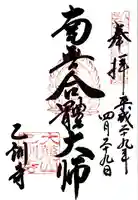 奉拝
平成二十九年
四月二十九日
南無合體大師
乙訓寺